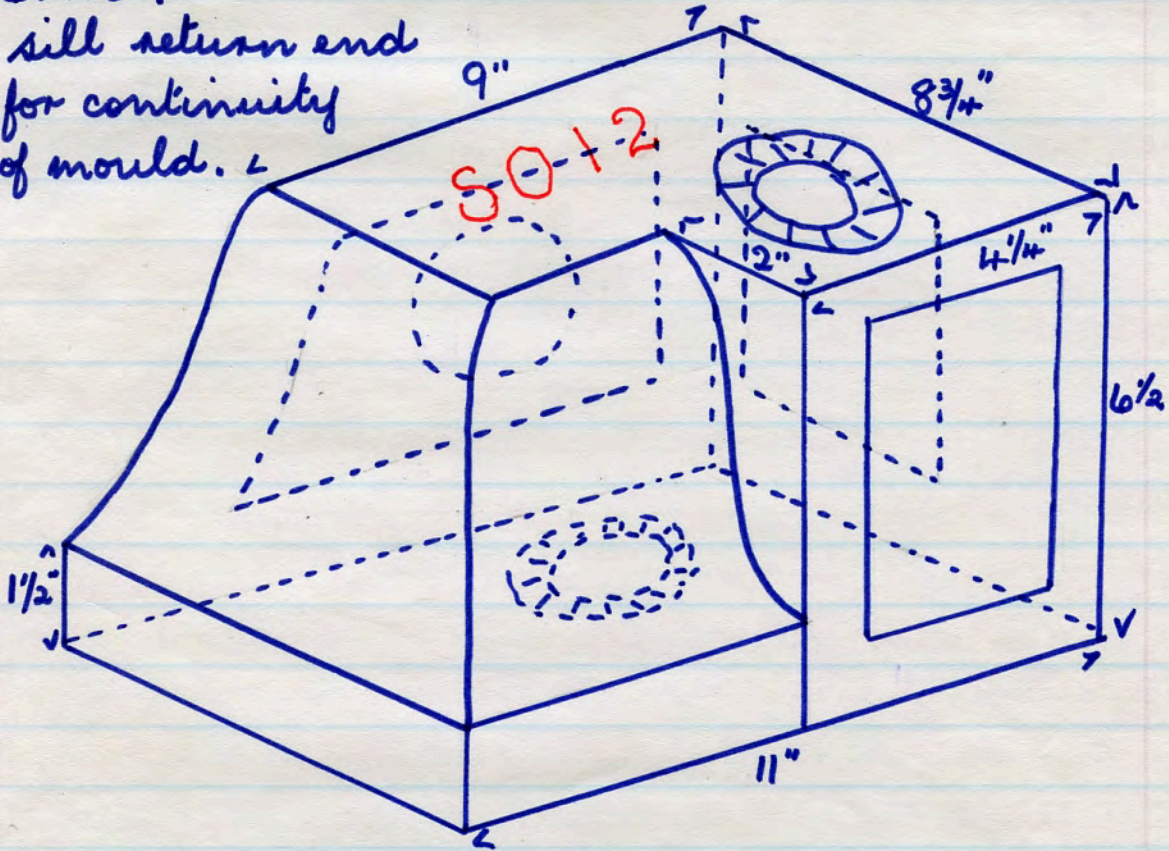 sill return end
for continuity
of mould.
9"
8 3/4"
SO12
2"
4 1/4"
6 1/2
1 1/2"
11"